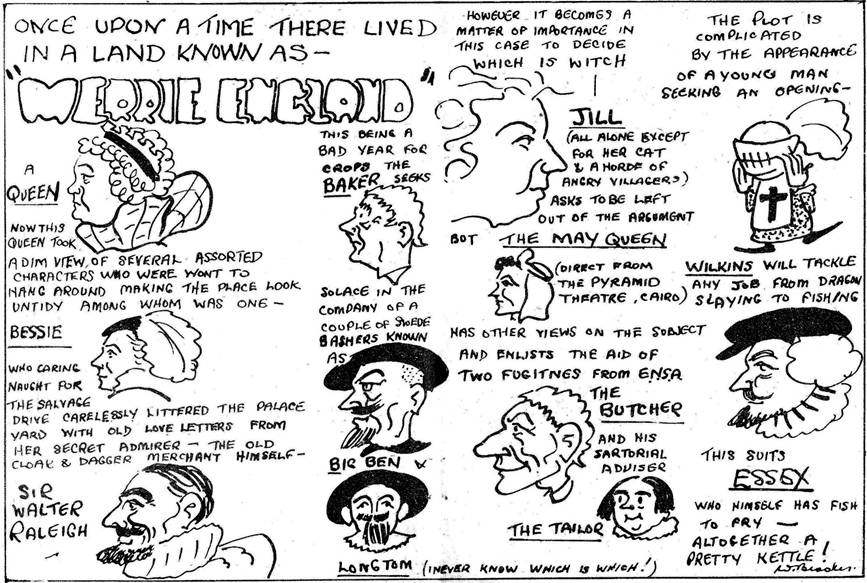 ONCE UPON A TIME THERE LIVED
IN A LAND KNOWN AS—
"MERRIE ENGLAND"
A
QUEEN
NOW THIS
QUEEN TOOK
A DIM VIEW, OF SEVERAL ASSORTED
CHARACTERS WHO WERE WONT TO
HANG AROUND MAKING THE PLACE LOOK
UNTIDY AMONG WHOM WAS ONE—
BESSIE
WHO CARING
NAUGHT FOR
THE SALVAGE
DRIVE CARELESSLY LITTERED THE PALACE
YARD WITH OLD LOVE LETTERS FROM
HER SECRET ADMIRER — THE OLD
CLOAK & DAGGER MERCHANT HIMSELF—
SIR
WALTER
RALEIGH
THIS BEING A
BAD YEAR FOR
CROPS THE
BAKER SEEKS
SOLACE IN THE
COMPANY OF A
COUPLE OF SWEDE
BASHERS KNOWN
AS
BIG BEN &
LONG TOM (I NEVER KNOW WHICH IS WHICH!)
HOWEVER IT BECOMES A
MATTER OF IMPORTANCE IN
THIS CASE TO DECIDE
WHICH IS WITCH
JILL
(ALL ALONE EXCEPT
FOR HER CAT
& A HORDE OF
ANGRY VILLAGERS)
ASKS TO BE LEFT
OUT OF THE ARGUMENT
BUT THE MAY QUEEN
(DIRECT FROM
THE PYRAMID
THEATRE, CAIRO)
HAS OTHER VIEWS ON THE SUBJECT
AND ENLISTS THE AID OF
TWO FUGITIVES FROM ENSA
THE
BUTCHER
AND HIS
SARTORIAL
ADVISER
THE TAILOR
THE PLOT IS
COMPLICATED
BY THE APPEARANCE
OF A YOUNG MAN
SEEKING AN OPENING—
WILKINS WILL TACKLE
ANY JOB FROM DRAGON
SLAYING TO FISHING
THIS SUITS
ESSEX
WHO HIMSELF HAS FISH
TO FRY —
ALTOGETHER A
PRETTY KETTLE!